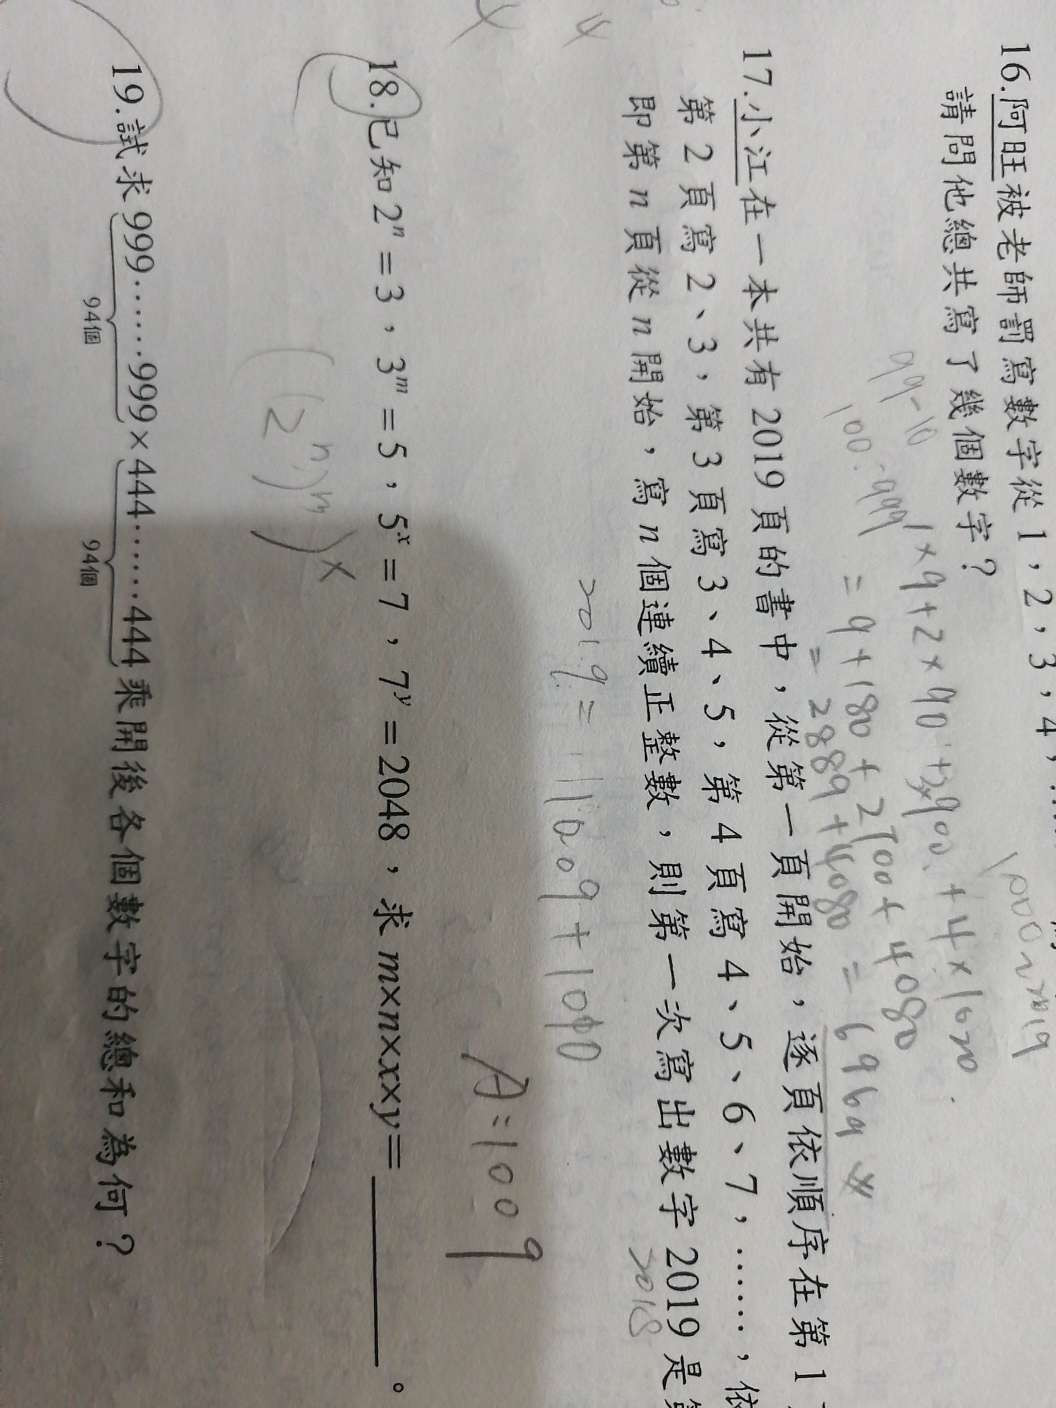 16.阿旺被老師罰寫數字從 1，2，3，4，
請問他總共寫了幾個數字？
1×9+2×90
= 9+180+2700+4080
= 2889+4080 = 6969
17.小江在一本共有 2019 頁的書中，從第一頁開始，逐頁依順序在第 1
第 2 頁寫 2、3，第 3 頁寫 3、4、5，第 4 頁寫 4、5、6、7，……，依
即第 n 頁從 n 開始，寫 n 個連續正整數，則第一次寫出數字 2019 是第
2018
A:1009
18.已知 2ⁿ＝3，3ᵐ＝5，5ˣ＝7，7ʸ＝2048，求 m×n×x×y＝________。
(2ⁿ)ᵐ)ˣ
19.試求 999……999×444……444 乘開後各個數字的總和為何？
94個 94個